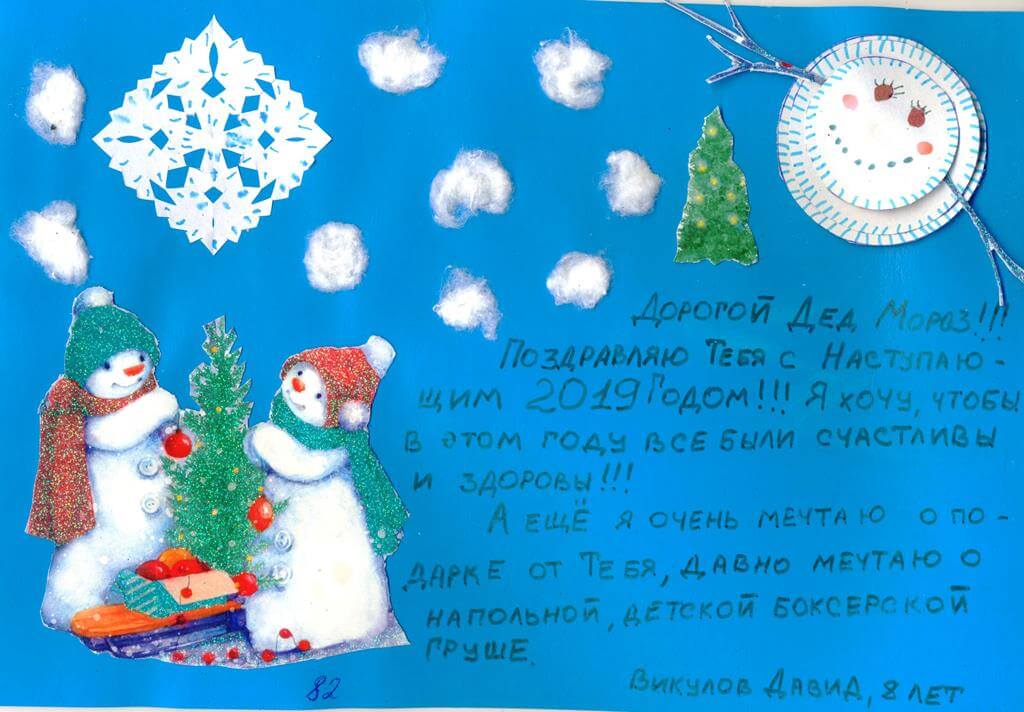 Дорогой Дед Мороз!!!
Поздравляю Тебя с Наступаю-
щим 2019 Годом!!! Я хочу, чтобы
в этом году все были счастливы
и здоровы!!!
А ещё я очень мечтаю о по-
дарке от Тебя, давно мечтаю о
напольной, детской боксерской
груше.
Викулов Давид, 8 лет
82